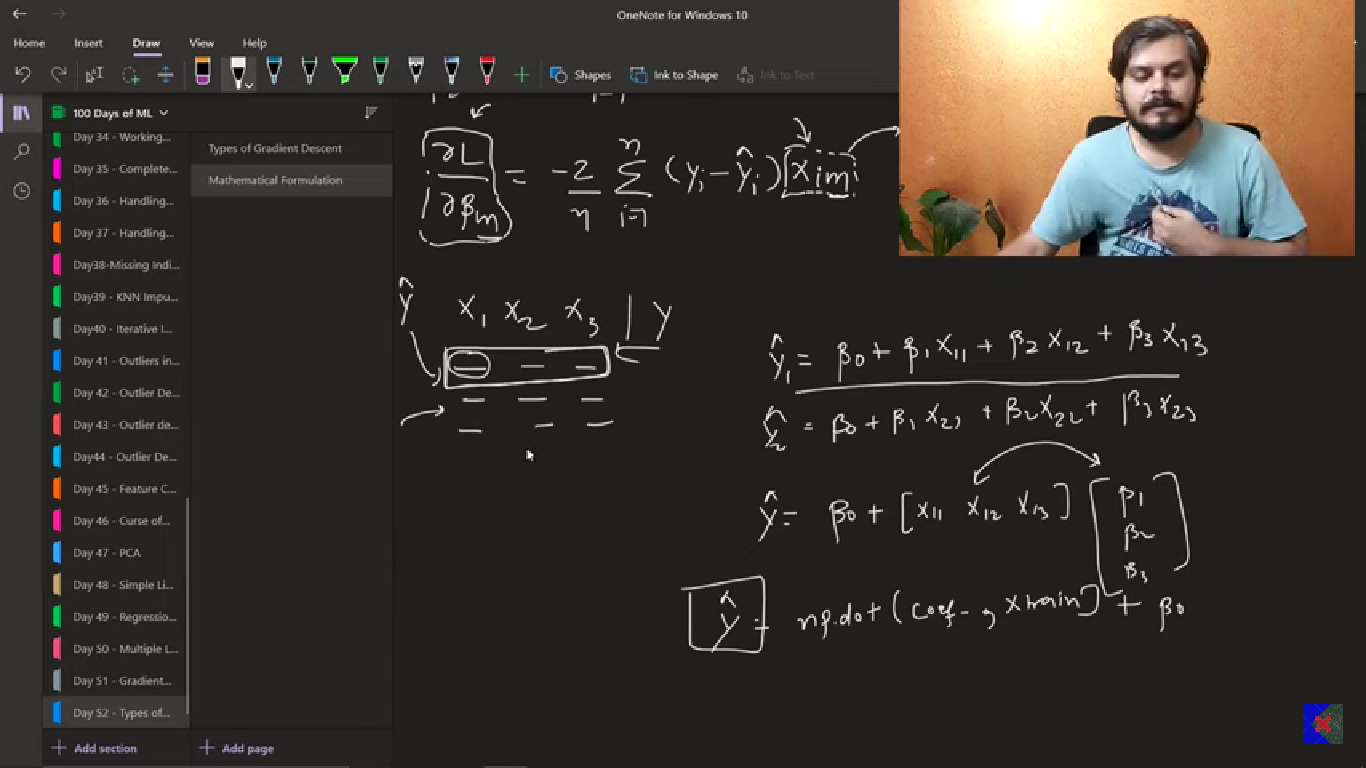 OneNote for Windows 10
Home Insert Draw View Help
Shapes Ink to Shape Ink to Text
100 Days of ML
Day 34 - Working...
Day 35 - Complete...
Day 36 - Handling...
Day 37 - Handling...
Day38-Missing Indi...
Day39 - KNN Impu...
Day40 - Iterative I...
Day 41 - Outliers in...
Day 42 - Outlier De...
Day 43 - Outlier de...
Day44 - Outlier Det...
Day 45 - Feature C...
Day 46 - Curse of...
Day 47 - PCA
Day 48 - Simple Li...
Day 49 - Regressio...
Day 50 - Multiple L...
Day 51 - Gradient...
Day 52 - Types of...
Add section
Types of Gradient Descent
Mathematical Formulation
Add page
∂L/∂βm = -2/n Σ i=1 n (yi - ŷi) xim
Ŷ x1 x2 x3 | y
ŷ1 = β0 + β1 x11 + β2 x12 + β3 x13
ŷ2 = β0 + β1 x21 + β2 x22 + β3 x23
ŷ = β0 + [x11 x12 x13] [β1 β2 β3]
ŷ = np.dot(coef_, xtrain) + β0